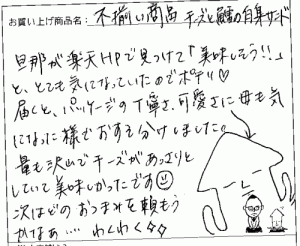 お買い上げ商品名： 不揃い商品 チーズと鱈の白身サンド
旦那が楽天HPで見つけて「美味しそう!!」
と、とても気になっていたのでポチッ♡
届くと、パッケージの丁寧さ、可愛さに母も気
になった様でおすそ分けしました。
量も沢山でチーズがあっさりと
していて美味しかったです
次はどのおつまみを頼もう
かなぁ… わくわく